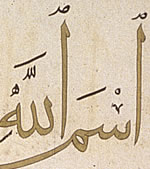 اسم الله